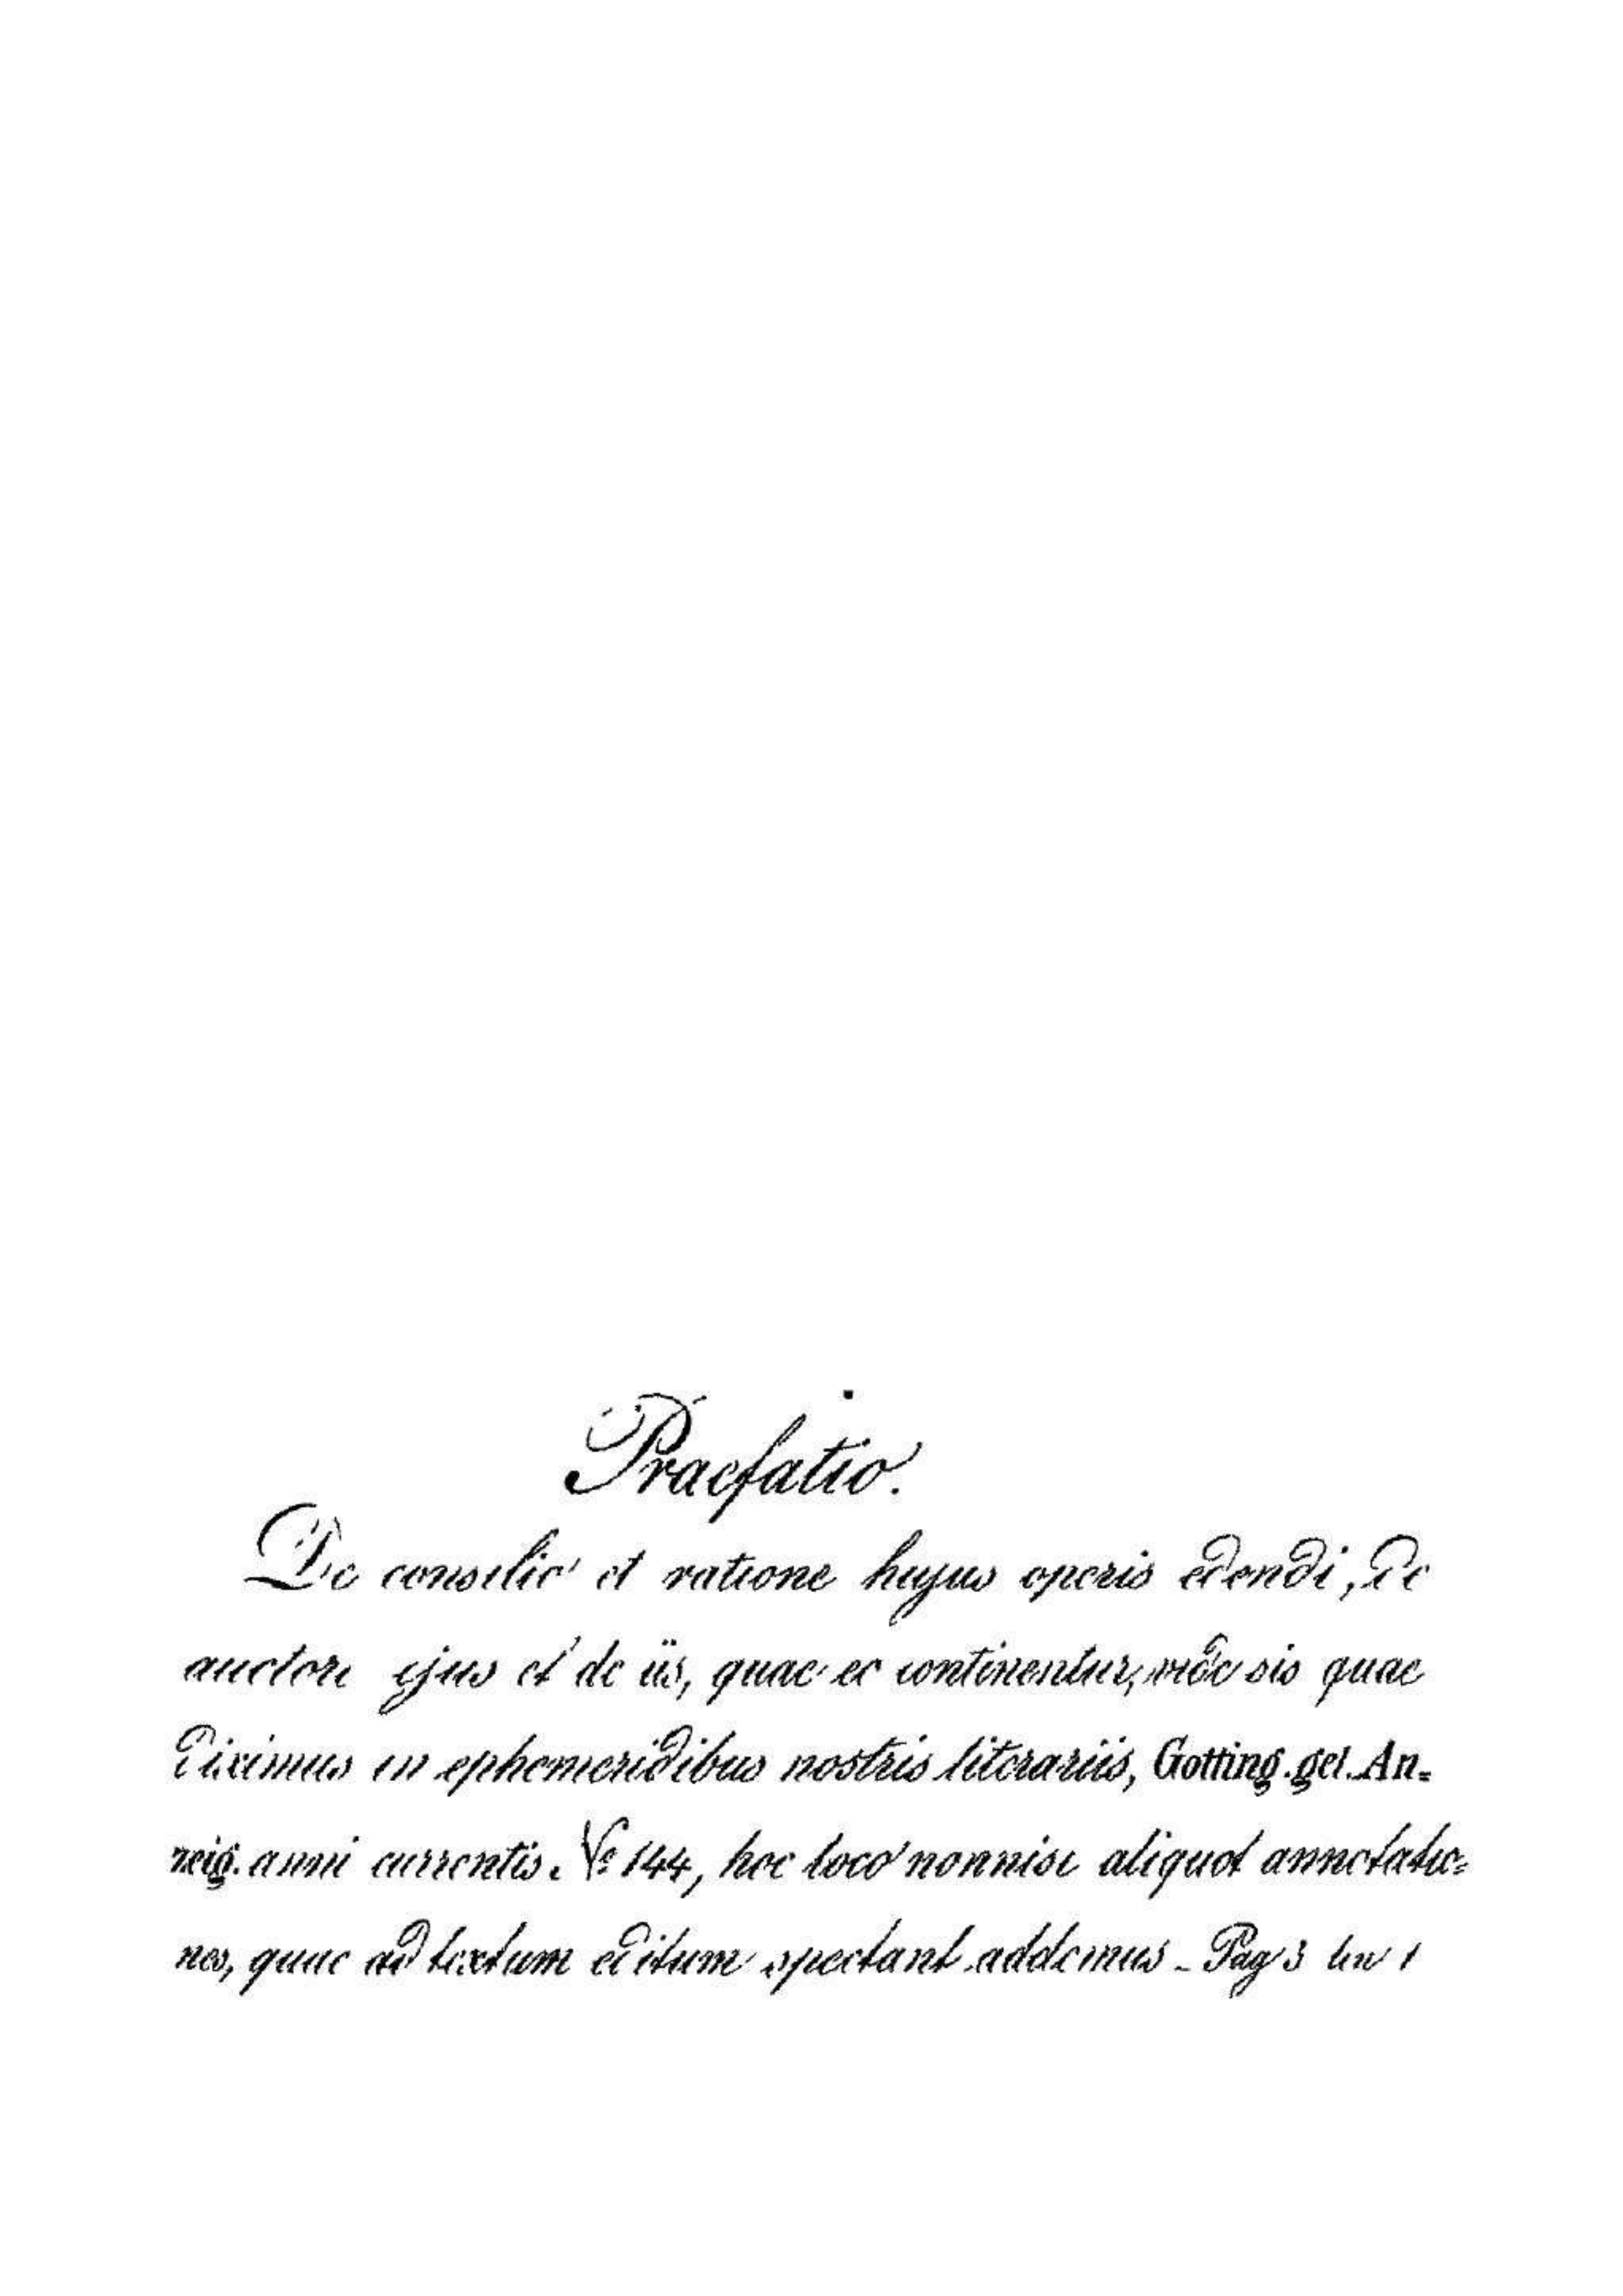 Praefatio.
De consilio et ratione hujus operis edendi, de
auctore ejus et de iis, quae eo continentur, vide sis quae
diximus in ephemeridibus nostris literariis, Gotting. gel. An-
zeig. anni currentis. No 144, hoc loco nonnisi aliquot annotatio-
nes, quae ad textum editum spectant addemus - Pag 3 lin 1